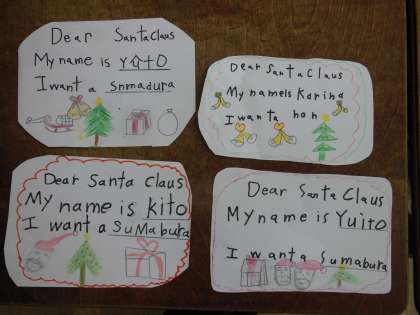 Dear SantaClaus
My name is
I want a Snmadura
Dear Santa Claus
My name Is Karina
I wan ta hon
Dear Santa Claus
My name is kito
I want a SuMabura
Dear Santa Claus
My name is Yuito
I want a Sumabura